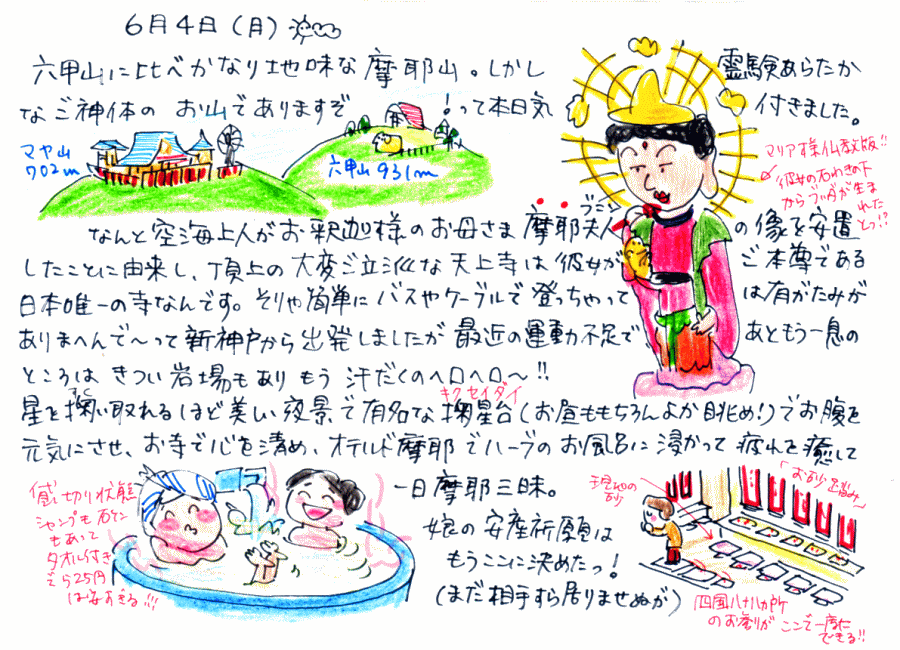 6月4日(月)
六甲山に比べかなり地味な摩耶山。しかし霊験あらたか
なご神体のお山でありますぞ!って本日気付きました。
マヤ山
702m
六甲山931m
マリア様仏教版!!
彼女の右わきの下
からブッダが生まれた
とっ!?
なんと空海上人がお釈迦様のお母さま摩耶夫人の像を安置
ブジン
したことに由来し、頂上の大変ご立派な天上寺は彼女がご本尊である
日本唯一の寺なんです。そりゃ簡単にバスやケーブルで登っちゃっては有がたみが
ありまへんで〜って新神戸から出発しましたが最近の運動不足であともう一息の
ところはきつい岩場もありもう汗だくのヘロヘロ〜!!
キクセイダイ
星を掬い取れるほど美しい夜景で有名な掬星台(お昼ももちろんよか眺め!)でお腹を
元気にさせ、お寺で心を清め、オテルド摩耶でハーブのお風呂に浸かって疲れを癒して
一日摩耶三昧。
娘の安産祈願は
もうここに決めたっ!
(まだ相手すら居りませぬが)
貸切り状態
シャンプーも石ケン
もあって
タオル付き
は安すぎる!!!
現地の
砂
「お砂踏み」
四国八十八カ所
のお参りがここで一度に
できる!!